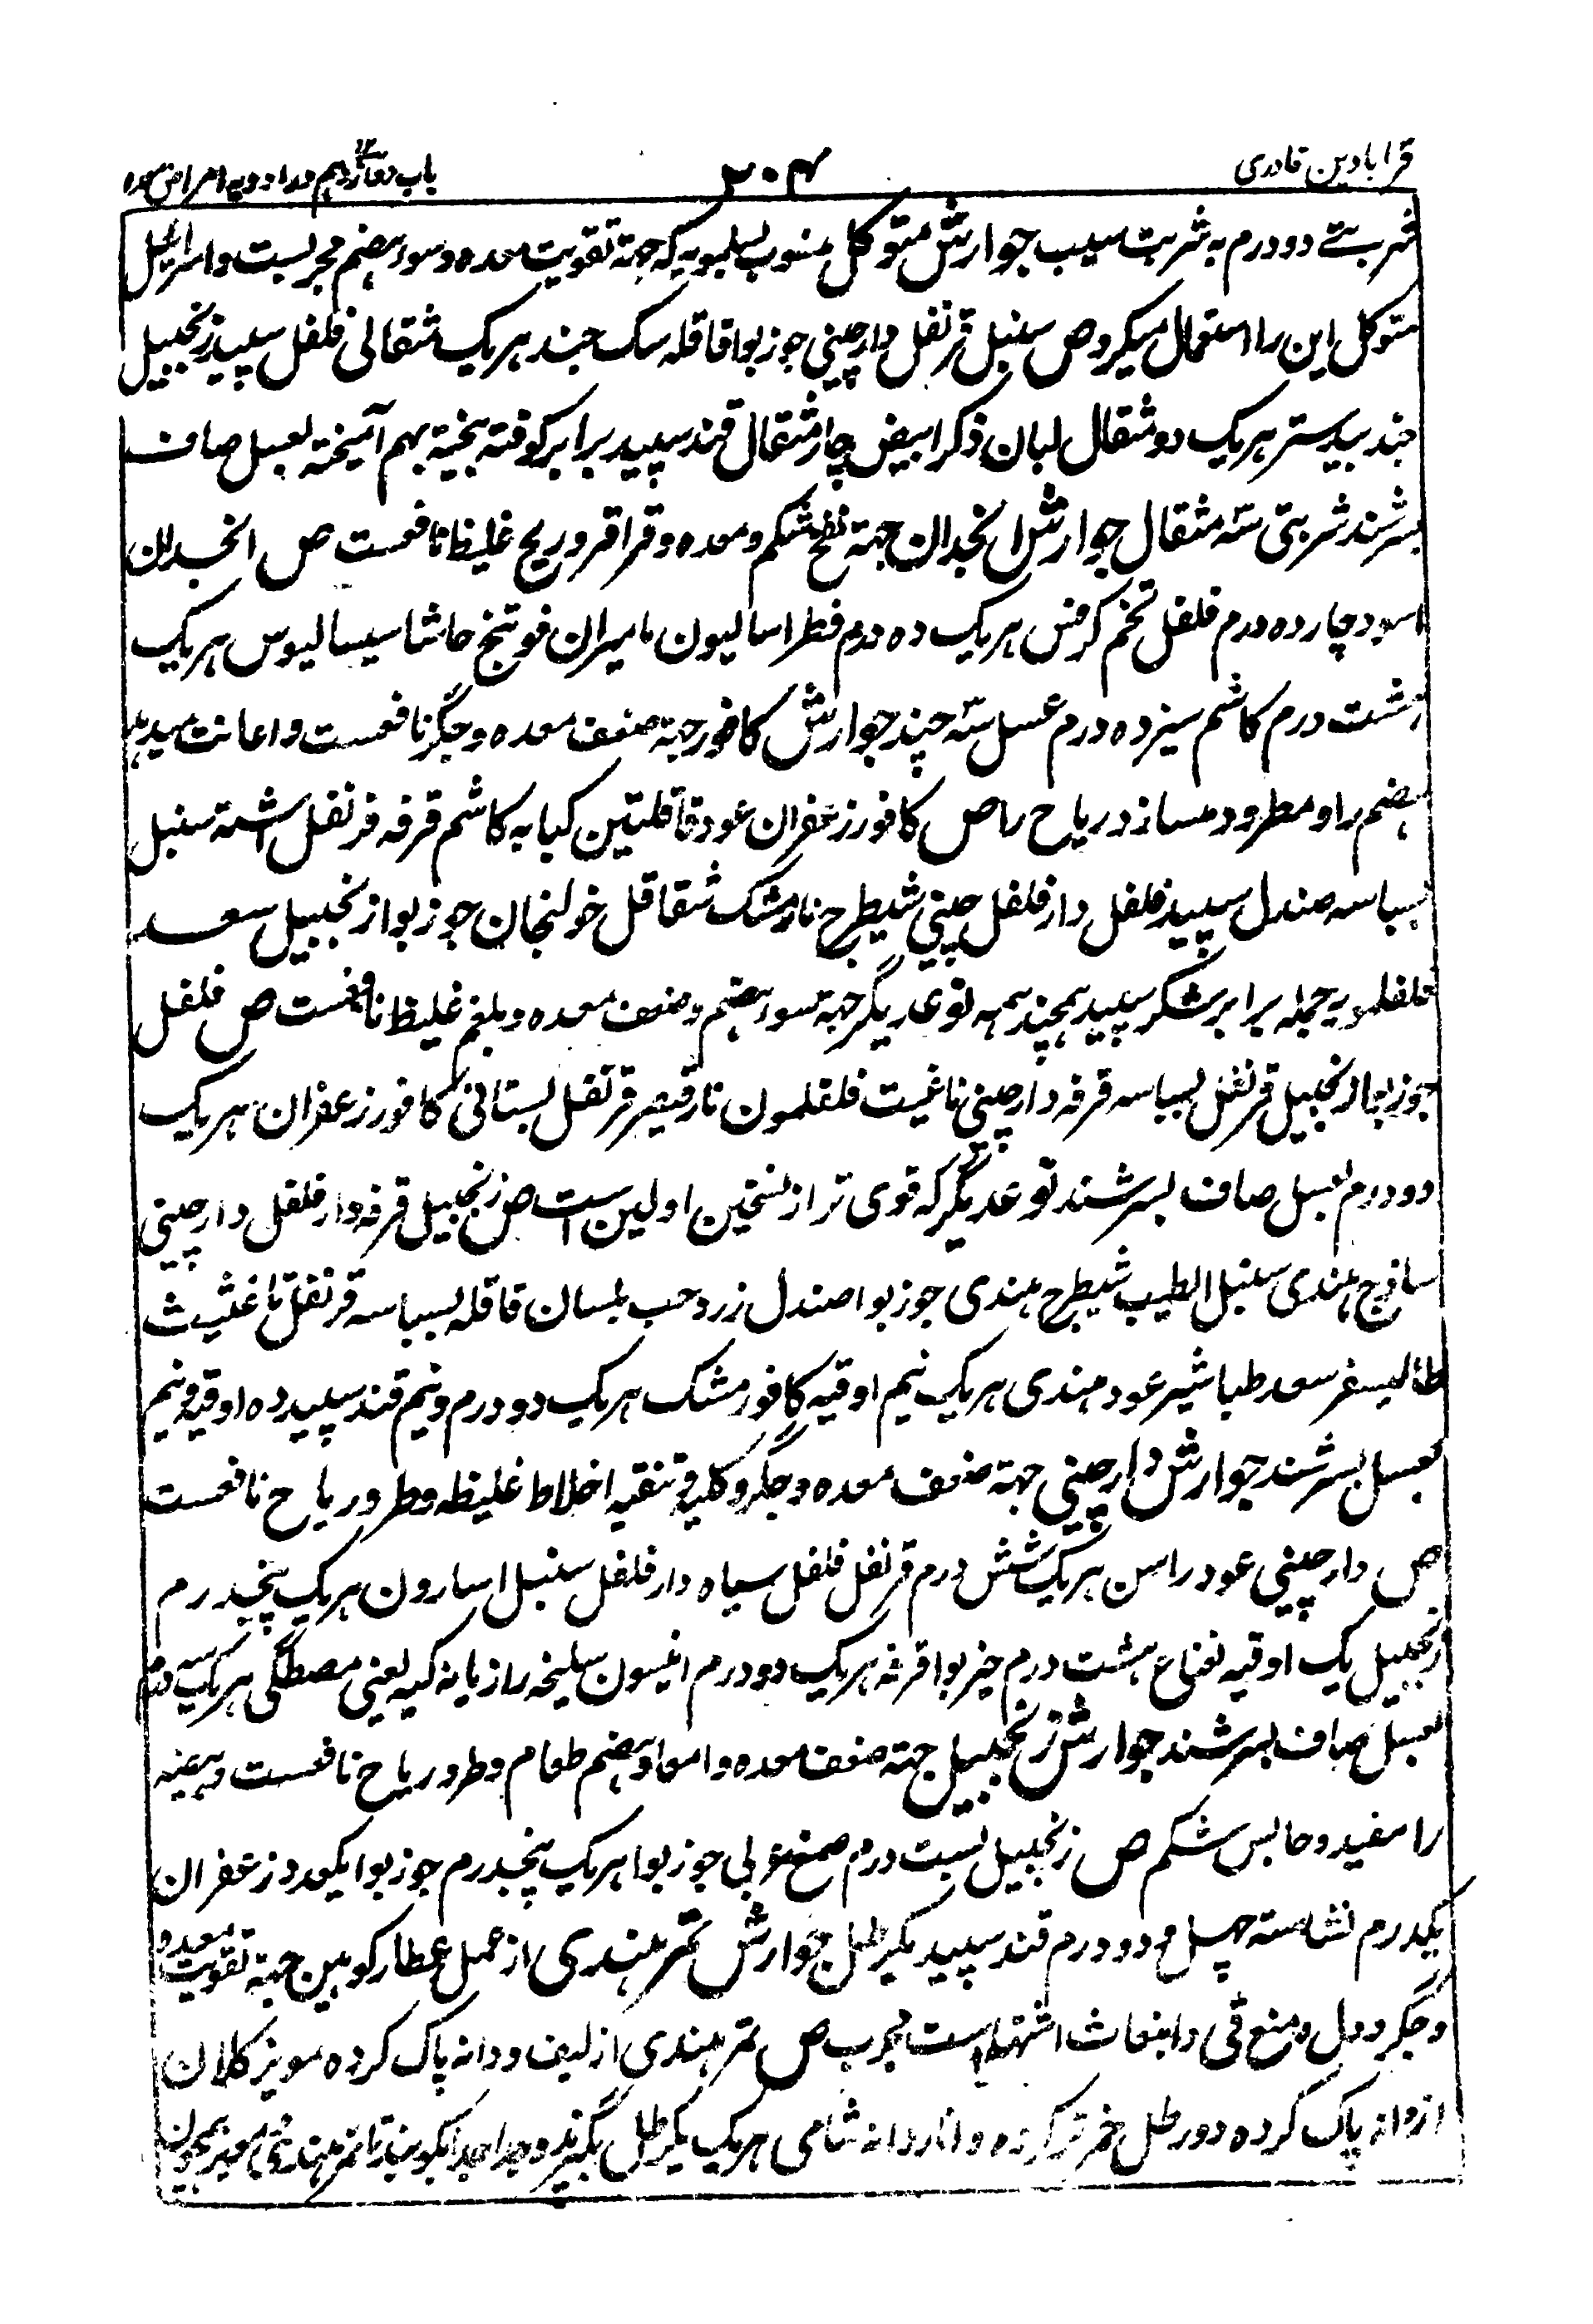 قرابادین قادری
۲۰۴
باب دوازدهم در ادویه امراض معده
شربتے دو درم به شربت سیب جوارش متوکل منسوب بسلمویه که جهة تقویت معده و سوء هضم مجربست و
متوکل این را استعمال میکرد ص سنبل قرنفل دارچینی جوزبوا قاقله سک حند هریک مثقالی فلفل سپید زنجبیل
جند بیدستر هریک دو مثقال لبان ذکر ابیض چار مثقال قند سپید برابر کوفته بیخته بهم آمیخته بعسل صاف
بسرشند شربتی سه مثقال جوارش انجدان جهة نفخ شکم و معده و قراقر و ریح غلیظ نافعست ص انجدان
اسود چارده درم فلفل تخم کرفس هریک ده درم فطراسالیون مامیران فوتنج حاشا سیسالیوس هریک
هشت درم کاشم سیزده درم عسل سه چند جوارش کافور جهة ضعف معده و جگر نافعست و اعانت میدهد
هضم را و مطرود میسازد ریاح را ص کافور زعفران عود قاقلتین کبابه کاشم قرفه قرنفل اشنه سنبل
بسباسه صندل سپید فلفل دارفلفل چینی شیطرج نارمشک شقاقل خولنجان جوزبوا زنجبیل سعد
فلفلمویه جمله برابر شکر سپید همچند همه نوی دیگر جهة سوء هضم و ضعف معده و بلغم غلیظ نافعست ص فلفل
جوزبوا زنجبیل قرنفل بسباسه قرفه دارچینی ناغیست فلفلمون نارقیصر قرنفل بستانی کافور زعفران هریک
دو درم بعسل صاف بسرشند نوعدیگر که قوی تر از نسختین اولین ست ص زنجبیل قرفه دارفلفل دارچینی
ساذج هندی سنبل الطیب شیطرج هندی جوزبوا صندل زرد حب بلسان قاقله بسباسه قرنفل ناغثیث
طالیسفر سعد طباشیر عود هندی هریک نیم اوقیه کافور مشک هریک دو درم و نیم قند سپید ده اوقیه و نیم
بعسل بسرشند جوارش دارچینی جهة ضعف معده و جگر و کلیه و تنقیه اخلاط غلیظه و طرد ریاح نافعست
ص دارچینی عود راسن هریک شش درم قرنفل فلفل سیاه دارفلفل سنبل اسارون هریک پنجدرم
زنجبیل یک اوقیه نعناع هشت درم خیربوا قرفه هریک دو درم انیسون سلیخه رازیانه کیه یعنی مصطکی هریک سه درم
بعسل صاف بسرشند جوارش زنجبیل جهة ضعف معده و امعا و هضم طعام و طرد ریاح نافعست و هیضه
را مفید و حابس شکم ص زنجبیل بست درم صمغ عربی جوزبوا هریک پنجدرم جوزبوا یکعدد زعفران
یکدرم نشاسته چهل و دو درم قند سپید یکرطل جوارش تمرهندی از عمل عطار کوهین جهة تقویت معده
و جگر و دل و منع قی و انبعاث اشتها ست مجرب ص تمرهندی از لیف و دانه پاک کرده مویز کلان
از دانه پاک کرده دو رطل خمر تر کرده و اناردانه شامی هریک یکرطل بگیرند و جدا جدا بکوبند تا تمرهندی مویز همچون